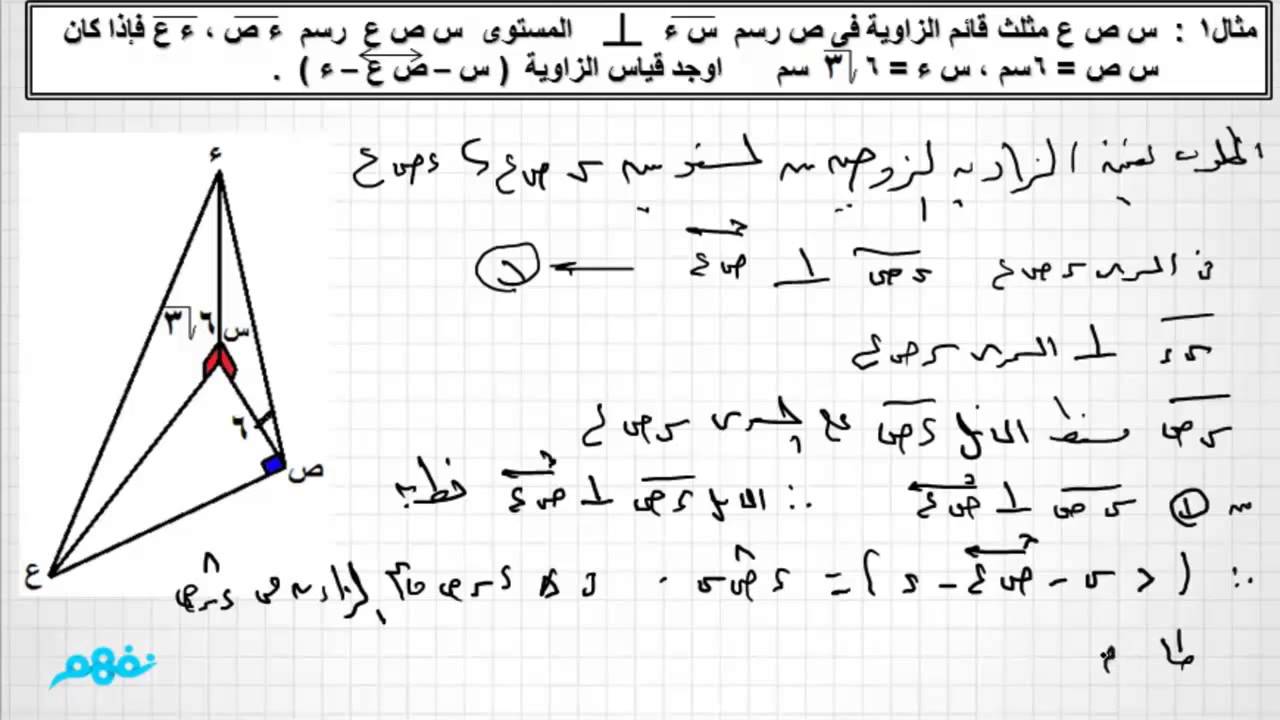 مثال١ : س ص ع مثلث قائم الزاوية فى ص رسم س ء ⊥ المستوى س ص ع رسم ء ص ، ء ع فإذا كان
س ص = ٦سم ، س ء = ٦√٣ سم اوجد قياس الزاوية ( س – ص ع – ء ) .
المطلوب تعيين الزاوية الزوجية بين المستويين س ص ع ، ء ص ع
فى المستوى س ص ع س ص ⊥ ص ع ← ①
س ء ⊥ المستوى س ص ع
س ص مسقط المائل ء ص على المستوى س ص ع
من ① س ص ⊥ ص ع ∴ المائل ء ص ⊥ ص ع
∴ (> س - ص ع - ء) = ء ص س . ∆ ء س ص الزاوية ء س ص
ظا
ء
٦√٣
س
٦
ص
ع
نفهم